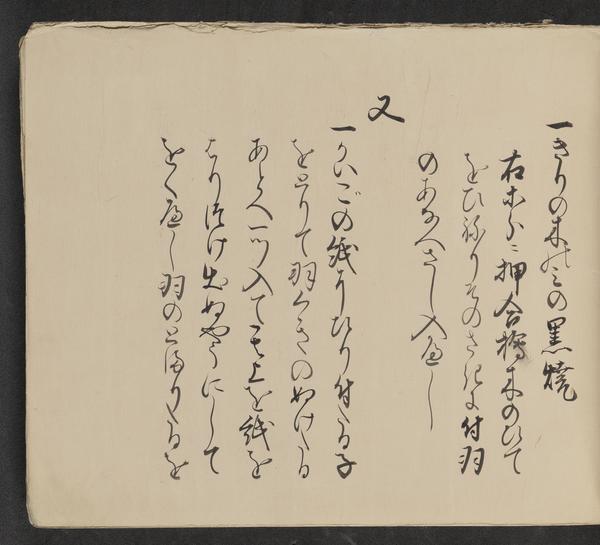 一きりの木のミの黒焼
右等分ニ押合揚木のひて
をひねりそのさきに付羽
のあなへさし入へし
又
一かいごの紙にひり付たる子
をとりて羽くきのぬけたる
あとへ一ツ入て其上を紙を
はり付け出ぬやうにして
をくへし羽のとまりたるを